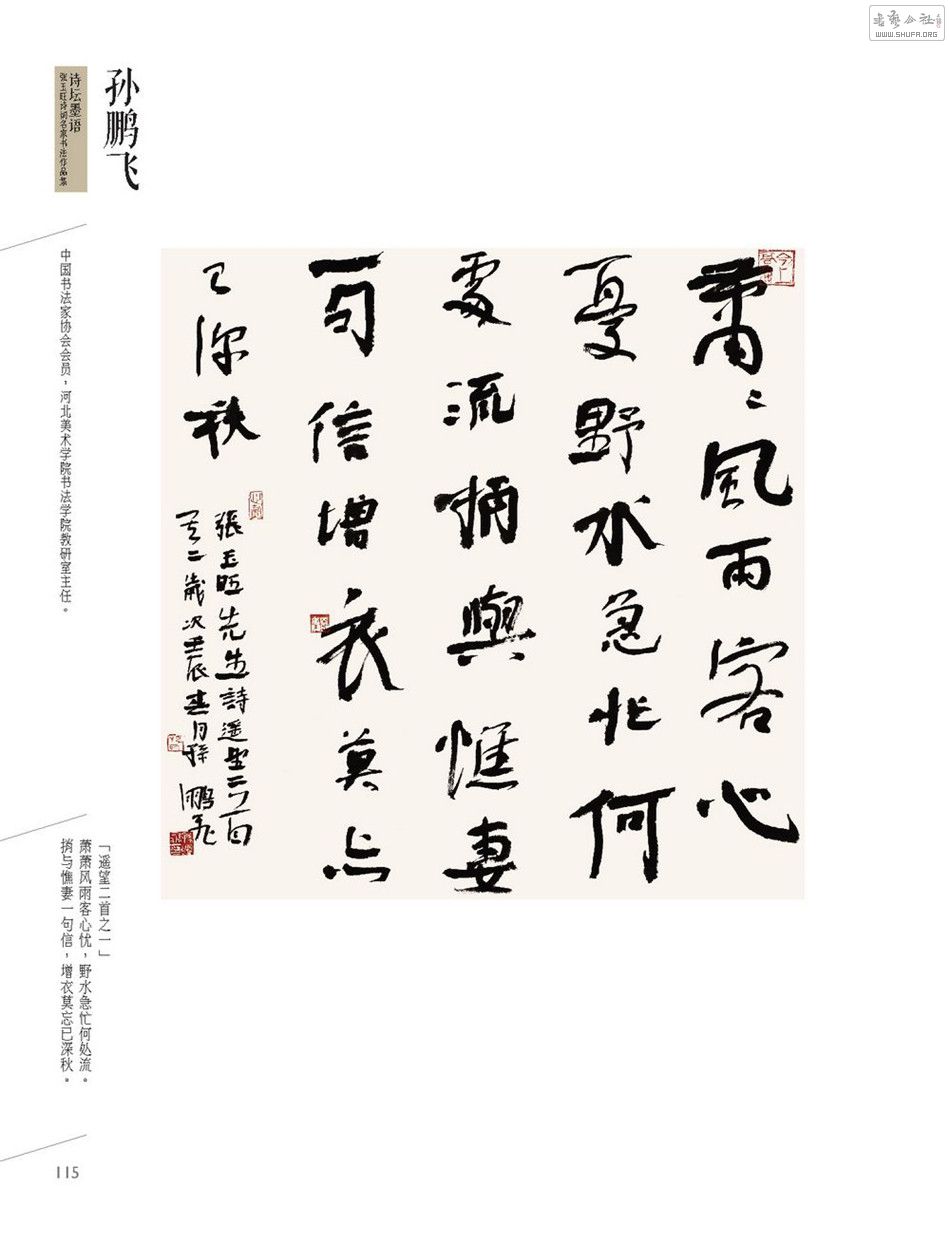 书艺公社
WWW.SHUFA.ORG
孙鹏飞
诗坛墨语
张玉旺诗词名家书法作品集
中国书法家协会会员，河北美术学院书法学院教研室主任。
蕭〻風雨客心
憂野水急忙何
處流捎與憔妻
一句信增衣莫忘
已深秋
張玉旺先生詩遥望二首一首
二歲次壬辰春月孫鹏飞
「遥望二首之一」
萧萧风雨客心忧，野水急忙何处流。
捎与憔妻一句信，增衣莫忘已深秋。
115